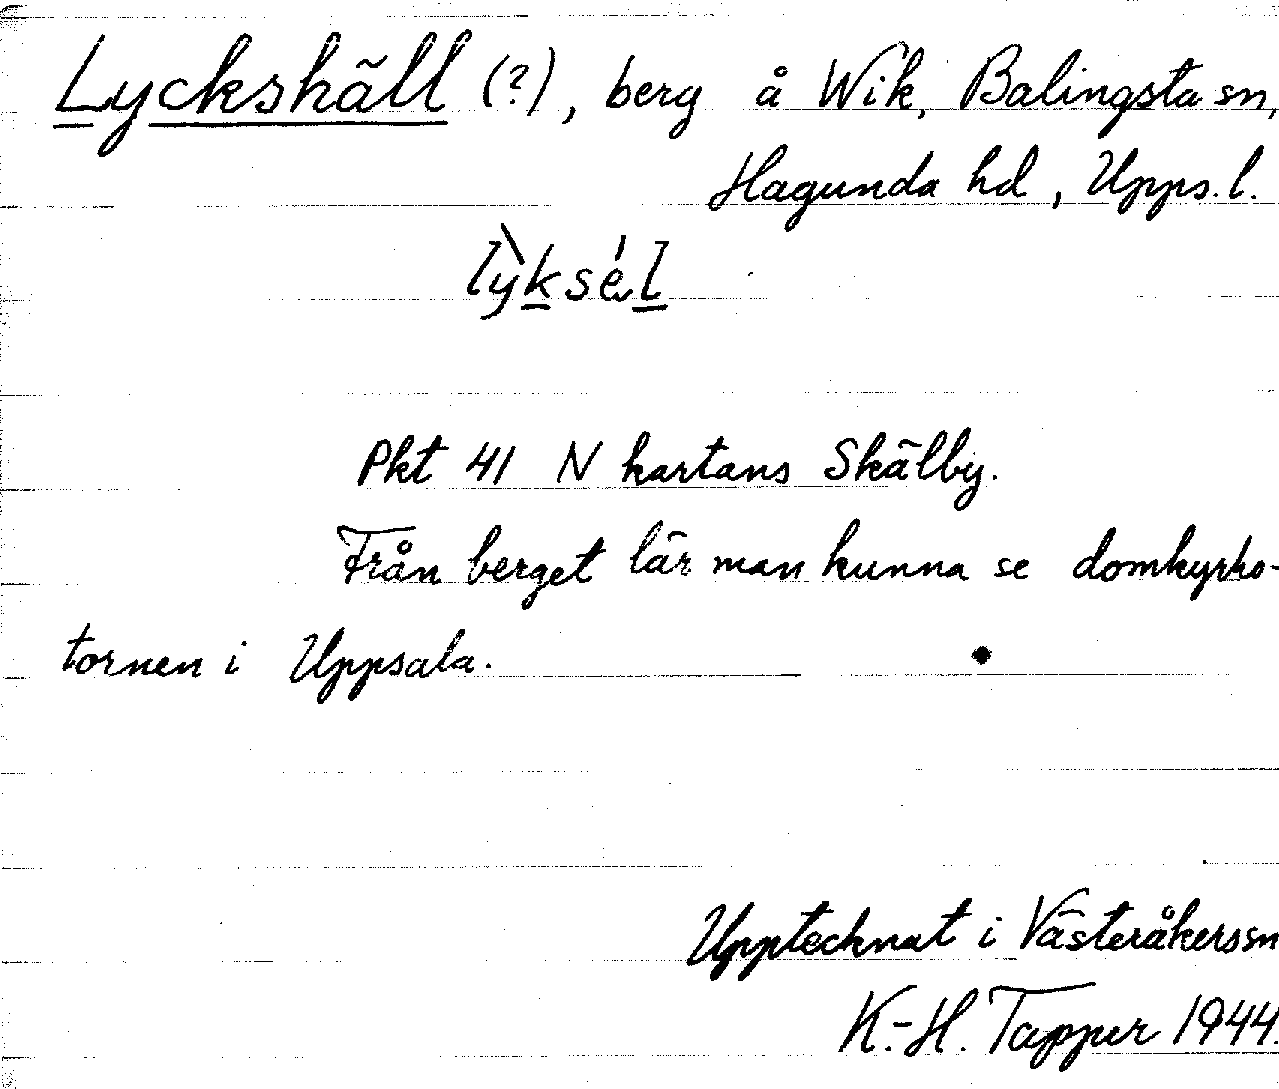 Lyckshäll (?), berg å Wik, Balingsta sn,
Hagunda hd, Upps. l.
lỳksél
Pkt 41 N kartans Skälby.
Från berget lär man kunna se domkyrko-
tornen i Uppsala.
Upptecknat i Västeråkers sn
K.-H. Tapper 1944.